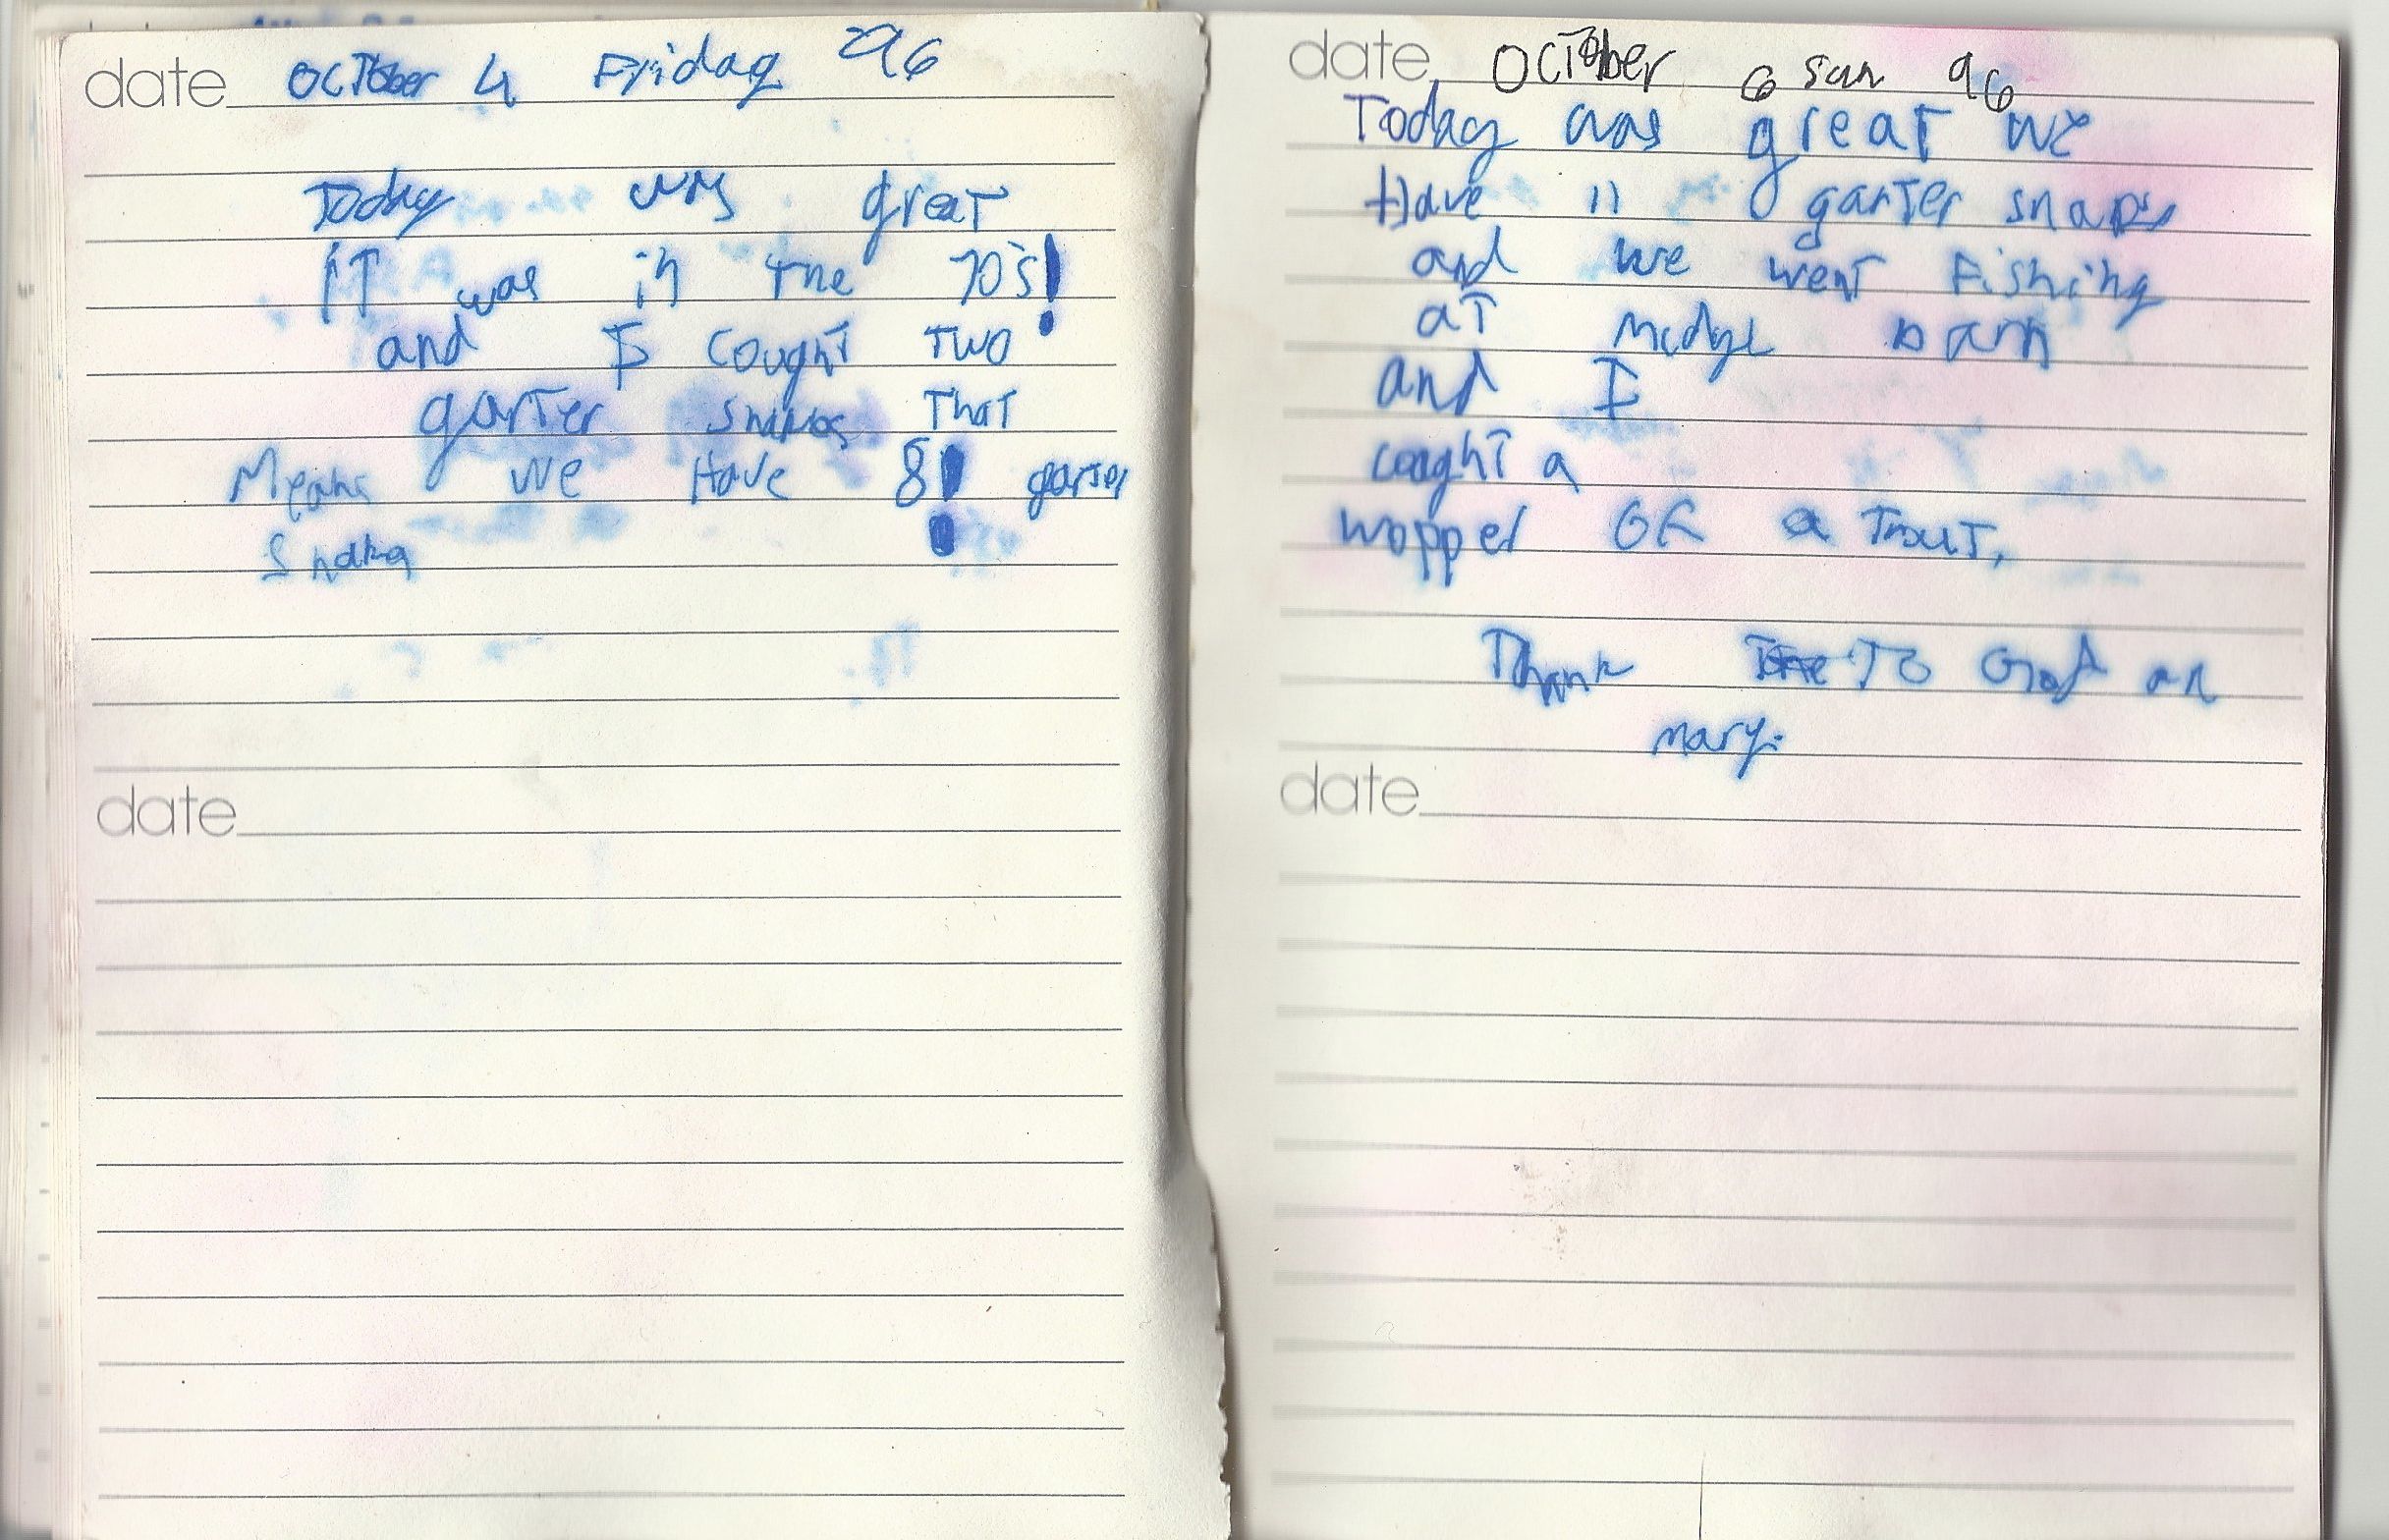 date OCTober 4 Friday 96
Today was great
IT was in The 70's!
and I cought Two
garTer snakes ThaT
Means we Have 8! garTer
Snake
date
date OCTober 6 sun 96
Today was greaT we
Have 11 garTer
and we wenT Fishing
aT
and I
coughT a
wopper OF a TrouT,
Thank To God an
mary.
date